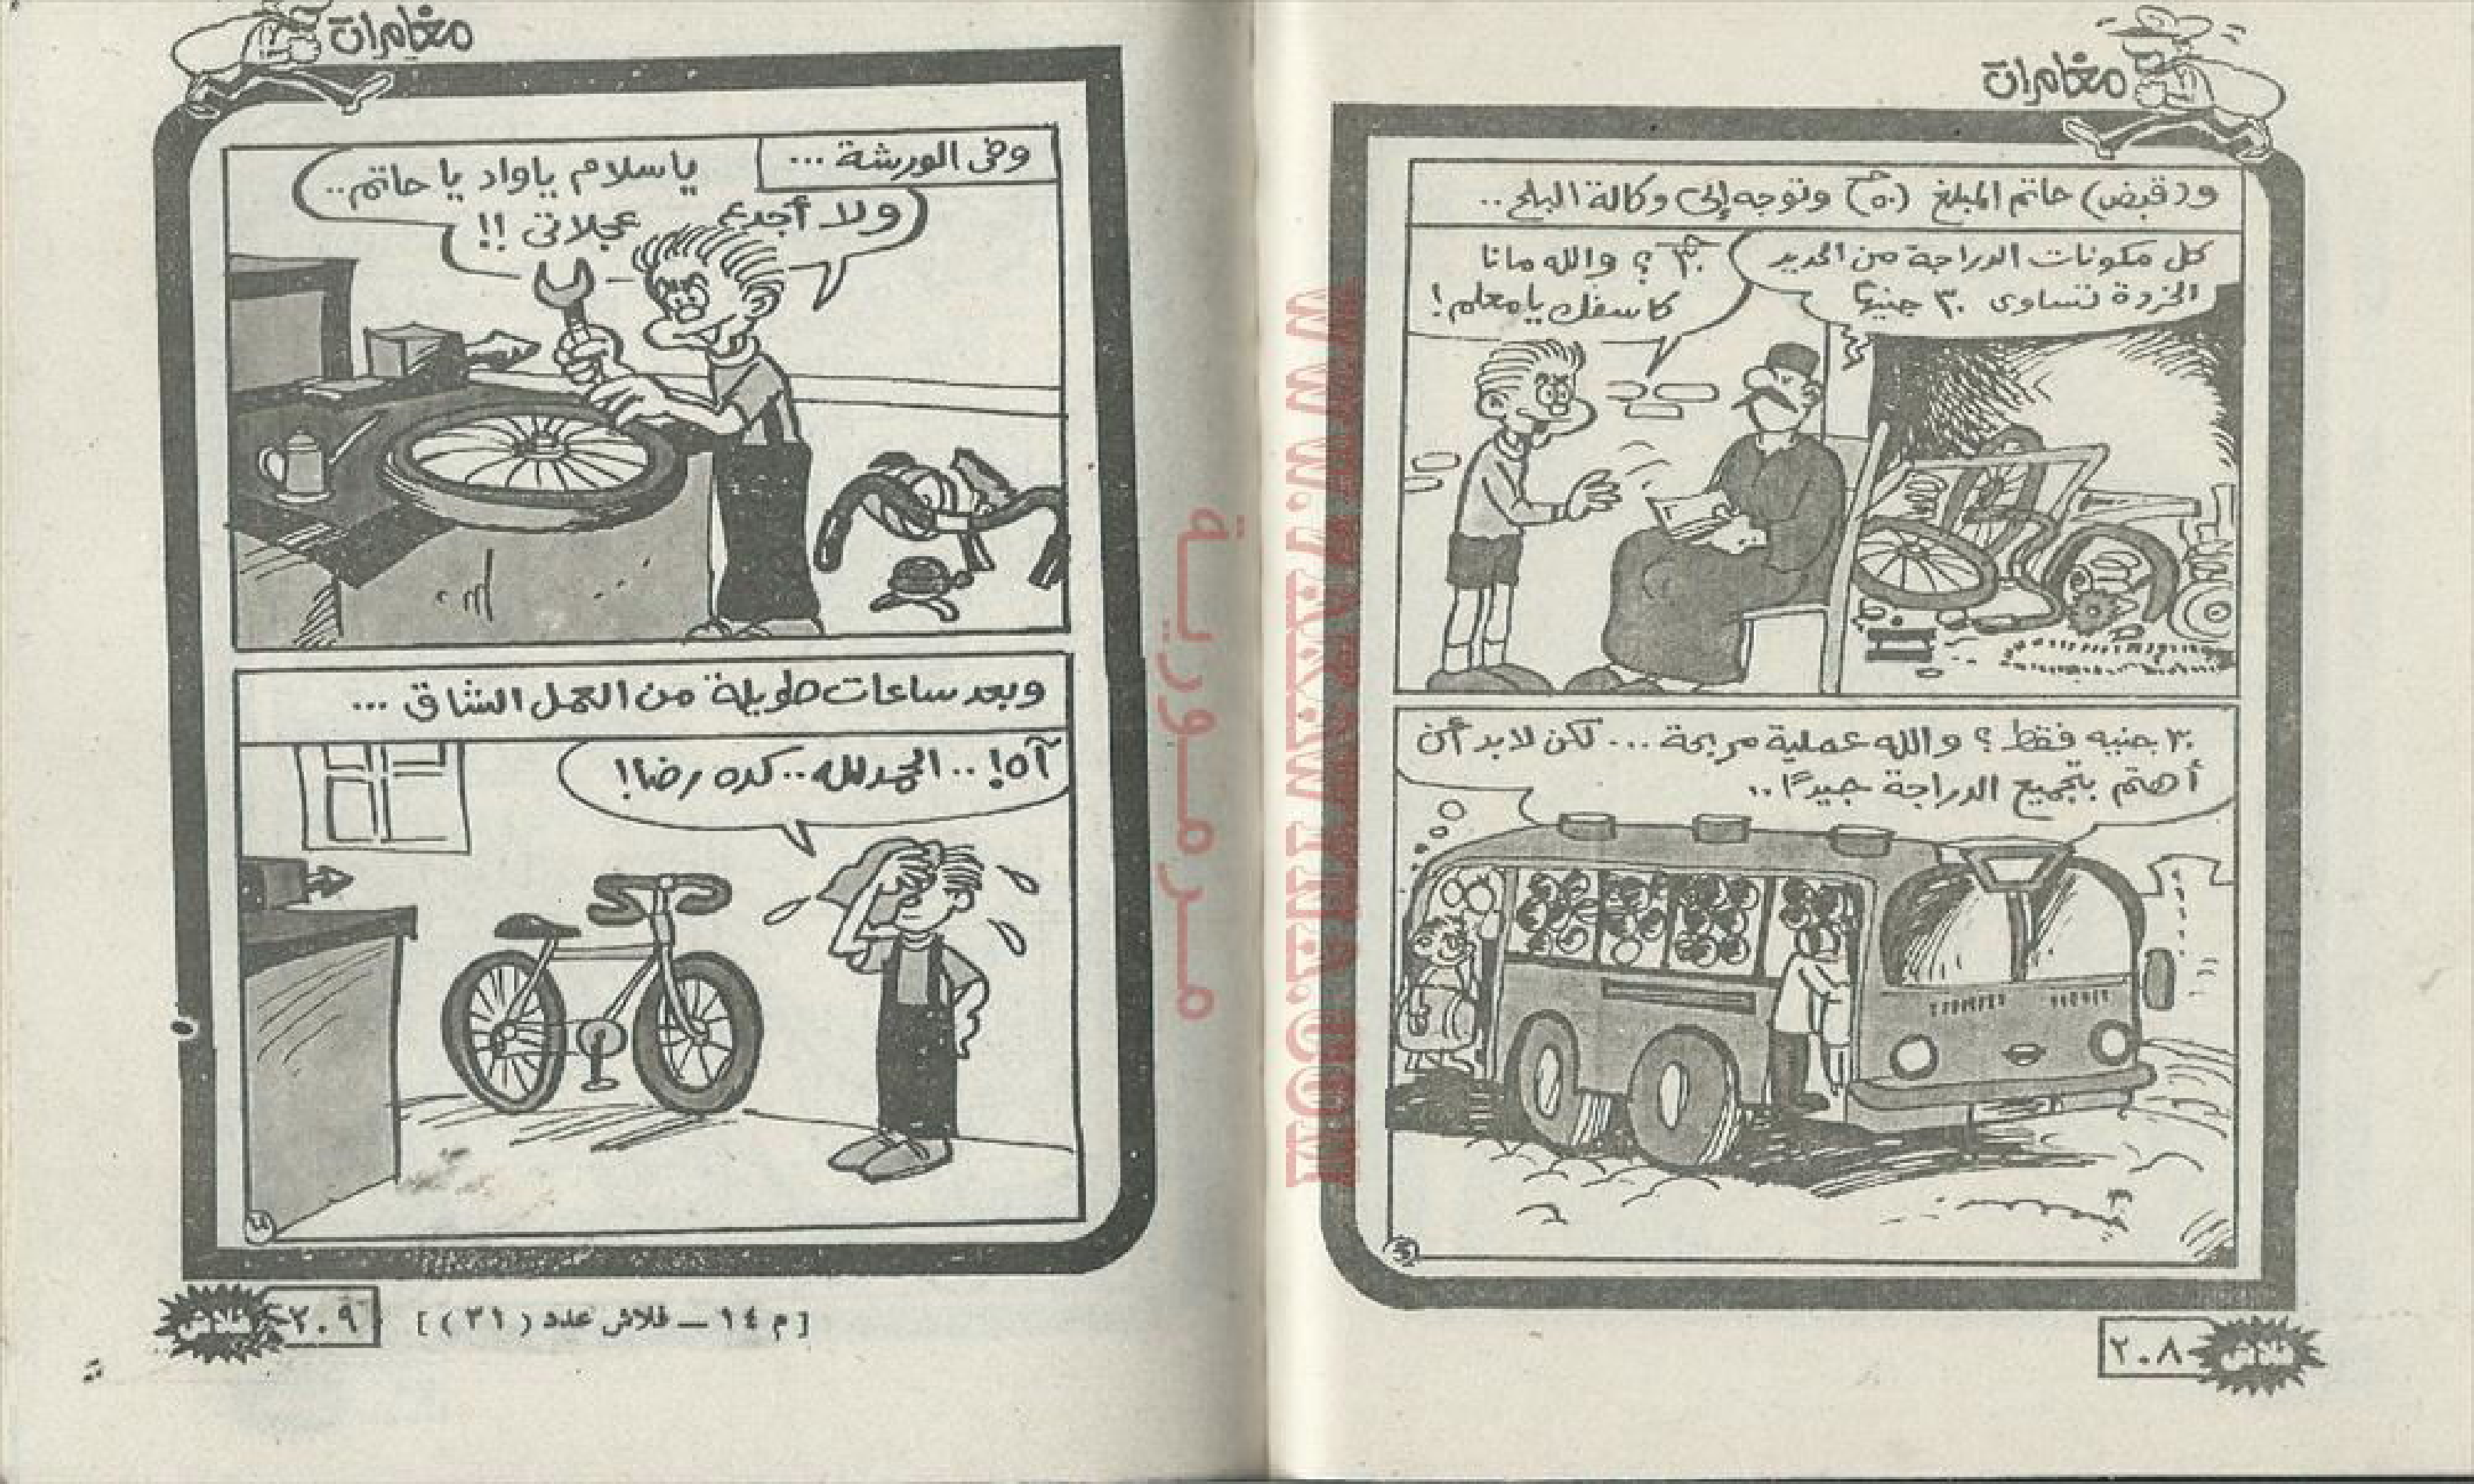 مغامرات
و(قبض) حاتم المبلغ (٥٠ ج) وتوجه إلى وكالة البلح..
كل مكونات الدراجة من الحديد
الخردة تساوى ٣٠ جنيها
٣٠ ؟ والله مانا
كاسفك يا معلم!
٣٠ جنيه فقط؟ والله عملية مربحة... لكن لابد أن
أهتم بتجميع الدراجة جيدًا..
٢٠٨
مغامرات
وفى الورشة...
ياسلام ياواد يا حاتم..
ولا أجدع عجلاتى!!
وبعد ساعات طويلة من العمل الشاق...
آه!.. الحمد لله.. كده رضا!
[ م ١٤ — فلاش عدد ( ٣١ ) ]
٢٠٩
مرمورية